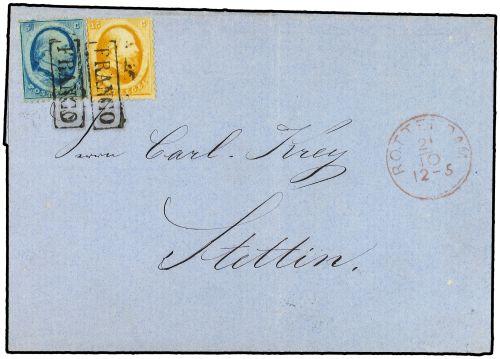 FRANCO
FRANCO
Herrn Carl. Krey
Stettin.
ROTTERDAM
21
10
12-5